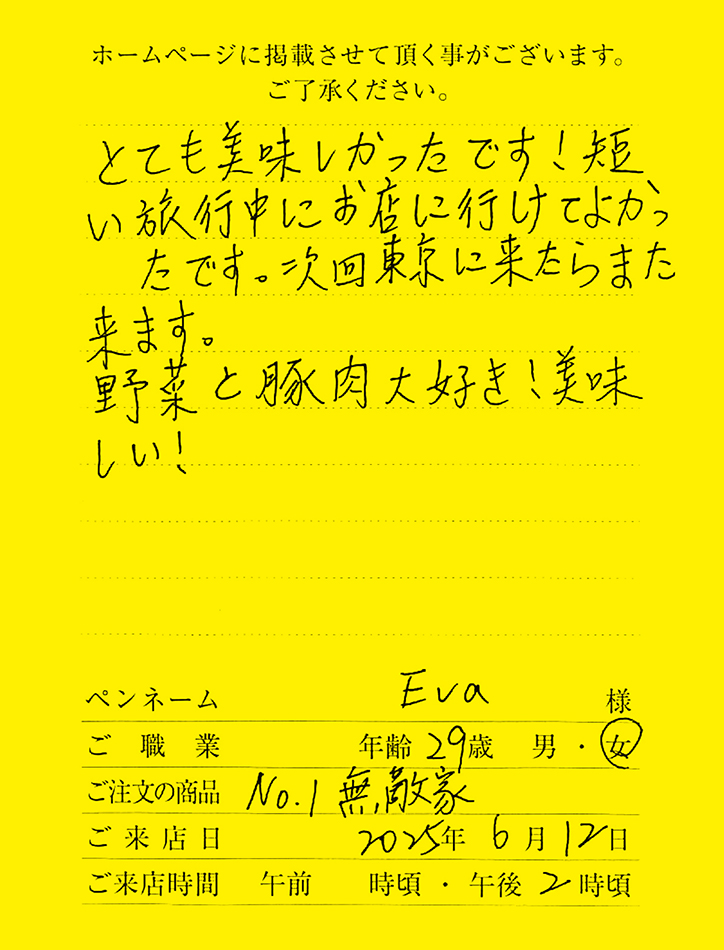 ホームページに掲載させて頂く事がございます。
ご了承ください。
とても美味しかったです！短
い旅行中にお店に行けてよかっ
たです。次回東京に来たらまた
来ます。
野菜と豚肉大好き！美味
しい！
ペンネーム Eva 様
ご職業 年齢 29歳 男・女
ご注文の商品 No.1 無敵家
ご来店日 2025年 6月 12日
ご来店時間 午前 時頃・午後 2時頃